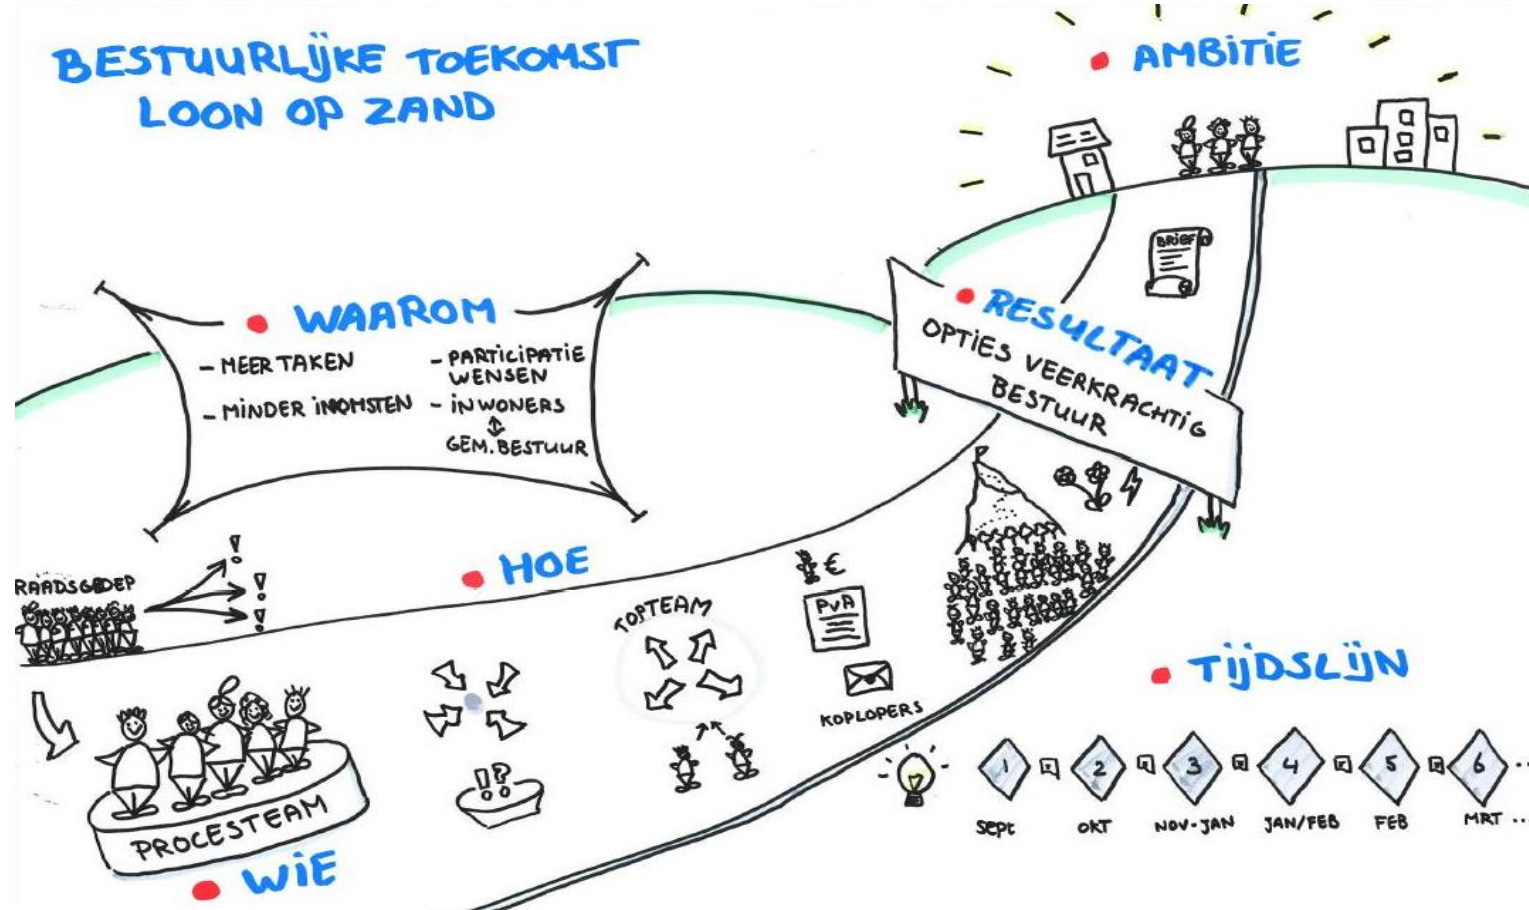 BESTUURLIJKE TOEKOMST
LOON OP ZAND
• AMBITIE
BRIEF
• WAAROM
- MEER TAKEN
- MINDER INKOMSTEN
- PARTICIPATIE
WENSEN
- INWONERS
↕
GEM. BESTUUR
• RESULTAAT
OPTIES VEERKRACHTIG
BESTUUR
• HOE
RAADSGROEP
! ! !
TOPTEAM
€
PvA
KOPLOPERS
!?
PROCESTEAM
• WIE
• TIJDSLIJN
1 2 3 4 5 6 ..
SEPT OKT NOV-JAN JAN/FEB FEB MRT ...